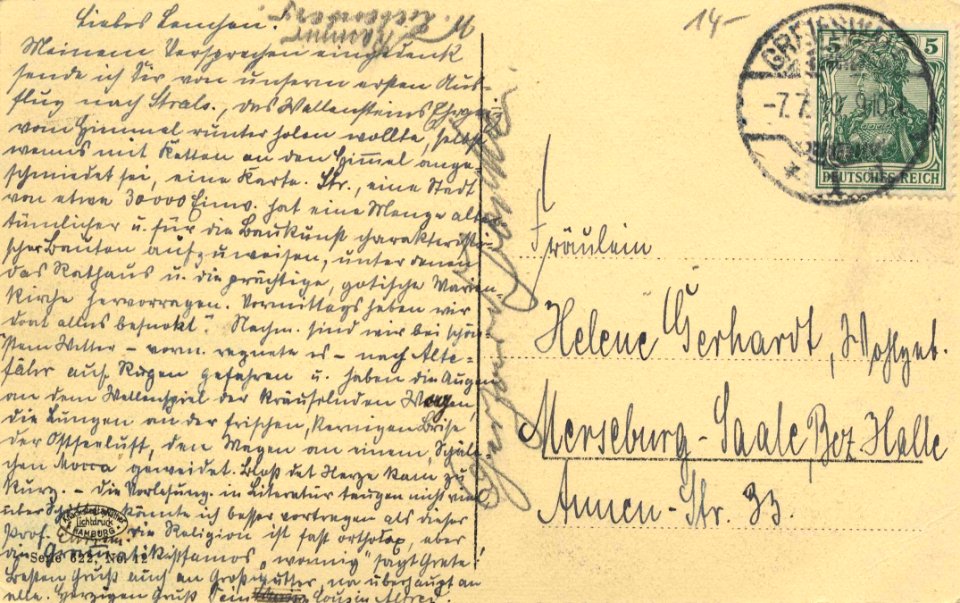 Liebes Lenchen!
Meinem Versprechen eingedenk
sende ich Dir von unserm ersten Aus-
flug nach Strals., das Wallensteins Ehrgeiz
vom Himmel runter holen wollte, selbst
wenns mit Ketten an den Himmel ange-
schmiedet sei, eine Karte. Str., eine Stadt
von etwa 30000 Einw. hat eine Menge alter-
tümlicher u. für die Baukunst charakteristi-
scher Bauten aufzuweisen, unter denen
das Rathaus u. die prächtige, gotische Marien-
kirche hervorragen. Vormittags haben wir
dort alles besuckt. Nachm. sind wir bei schön-
stem Wetter – vorm. regnete es – nach Alte-
fähr auf Rügen gefahren u. haben die Augen
an dem Wellenspiel der kräuselnden Wogen,
die Lungen an der frischen, kernigen Brise
der Ostseeluft, den Magen an einem „Schäl-
chen Mocca" geweidet. Bloß det Herze kam zu
kurz. – Die Vorlesung. in Literatur taugen nicht viel
über könnte ich besser vortragen als dieser
Prof. Die Religion ist fast ortholox, aber
sagt Grete!
Besten Gruß auch an Großmutter, na überhaupt an
alle. Herzigen Gruß Dein Cousin Alfred.
14-
GREIFSWALD
-7.7.10. 9-10
5 5
DEUTSCHES REICH
Fräulein
Helene Gerhardt, Wohlgeb.
Merseburg-Saale, Bez. Halle
Annen-Str. 33.
Lichtdruck
HAMBURG
Serie 622, No. 12